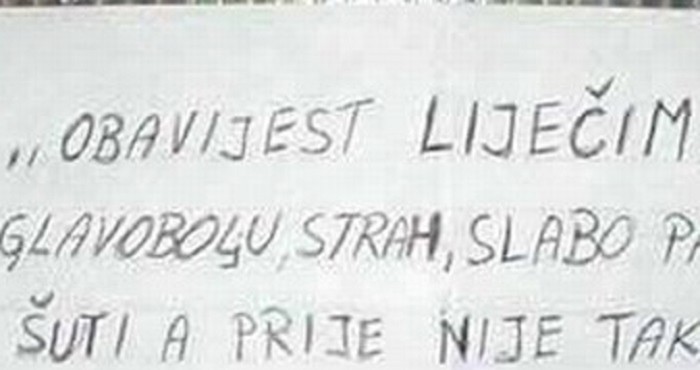 „OBAVIJEST LIJEČIM
GLAVOBOLJU, STRAH, SLABO PA
ŠUTI A PRIJE NIJE TAK